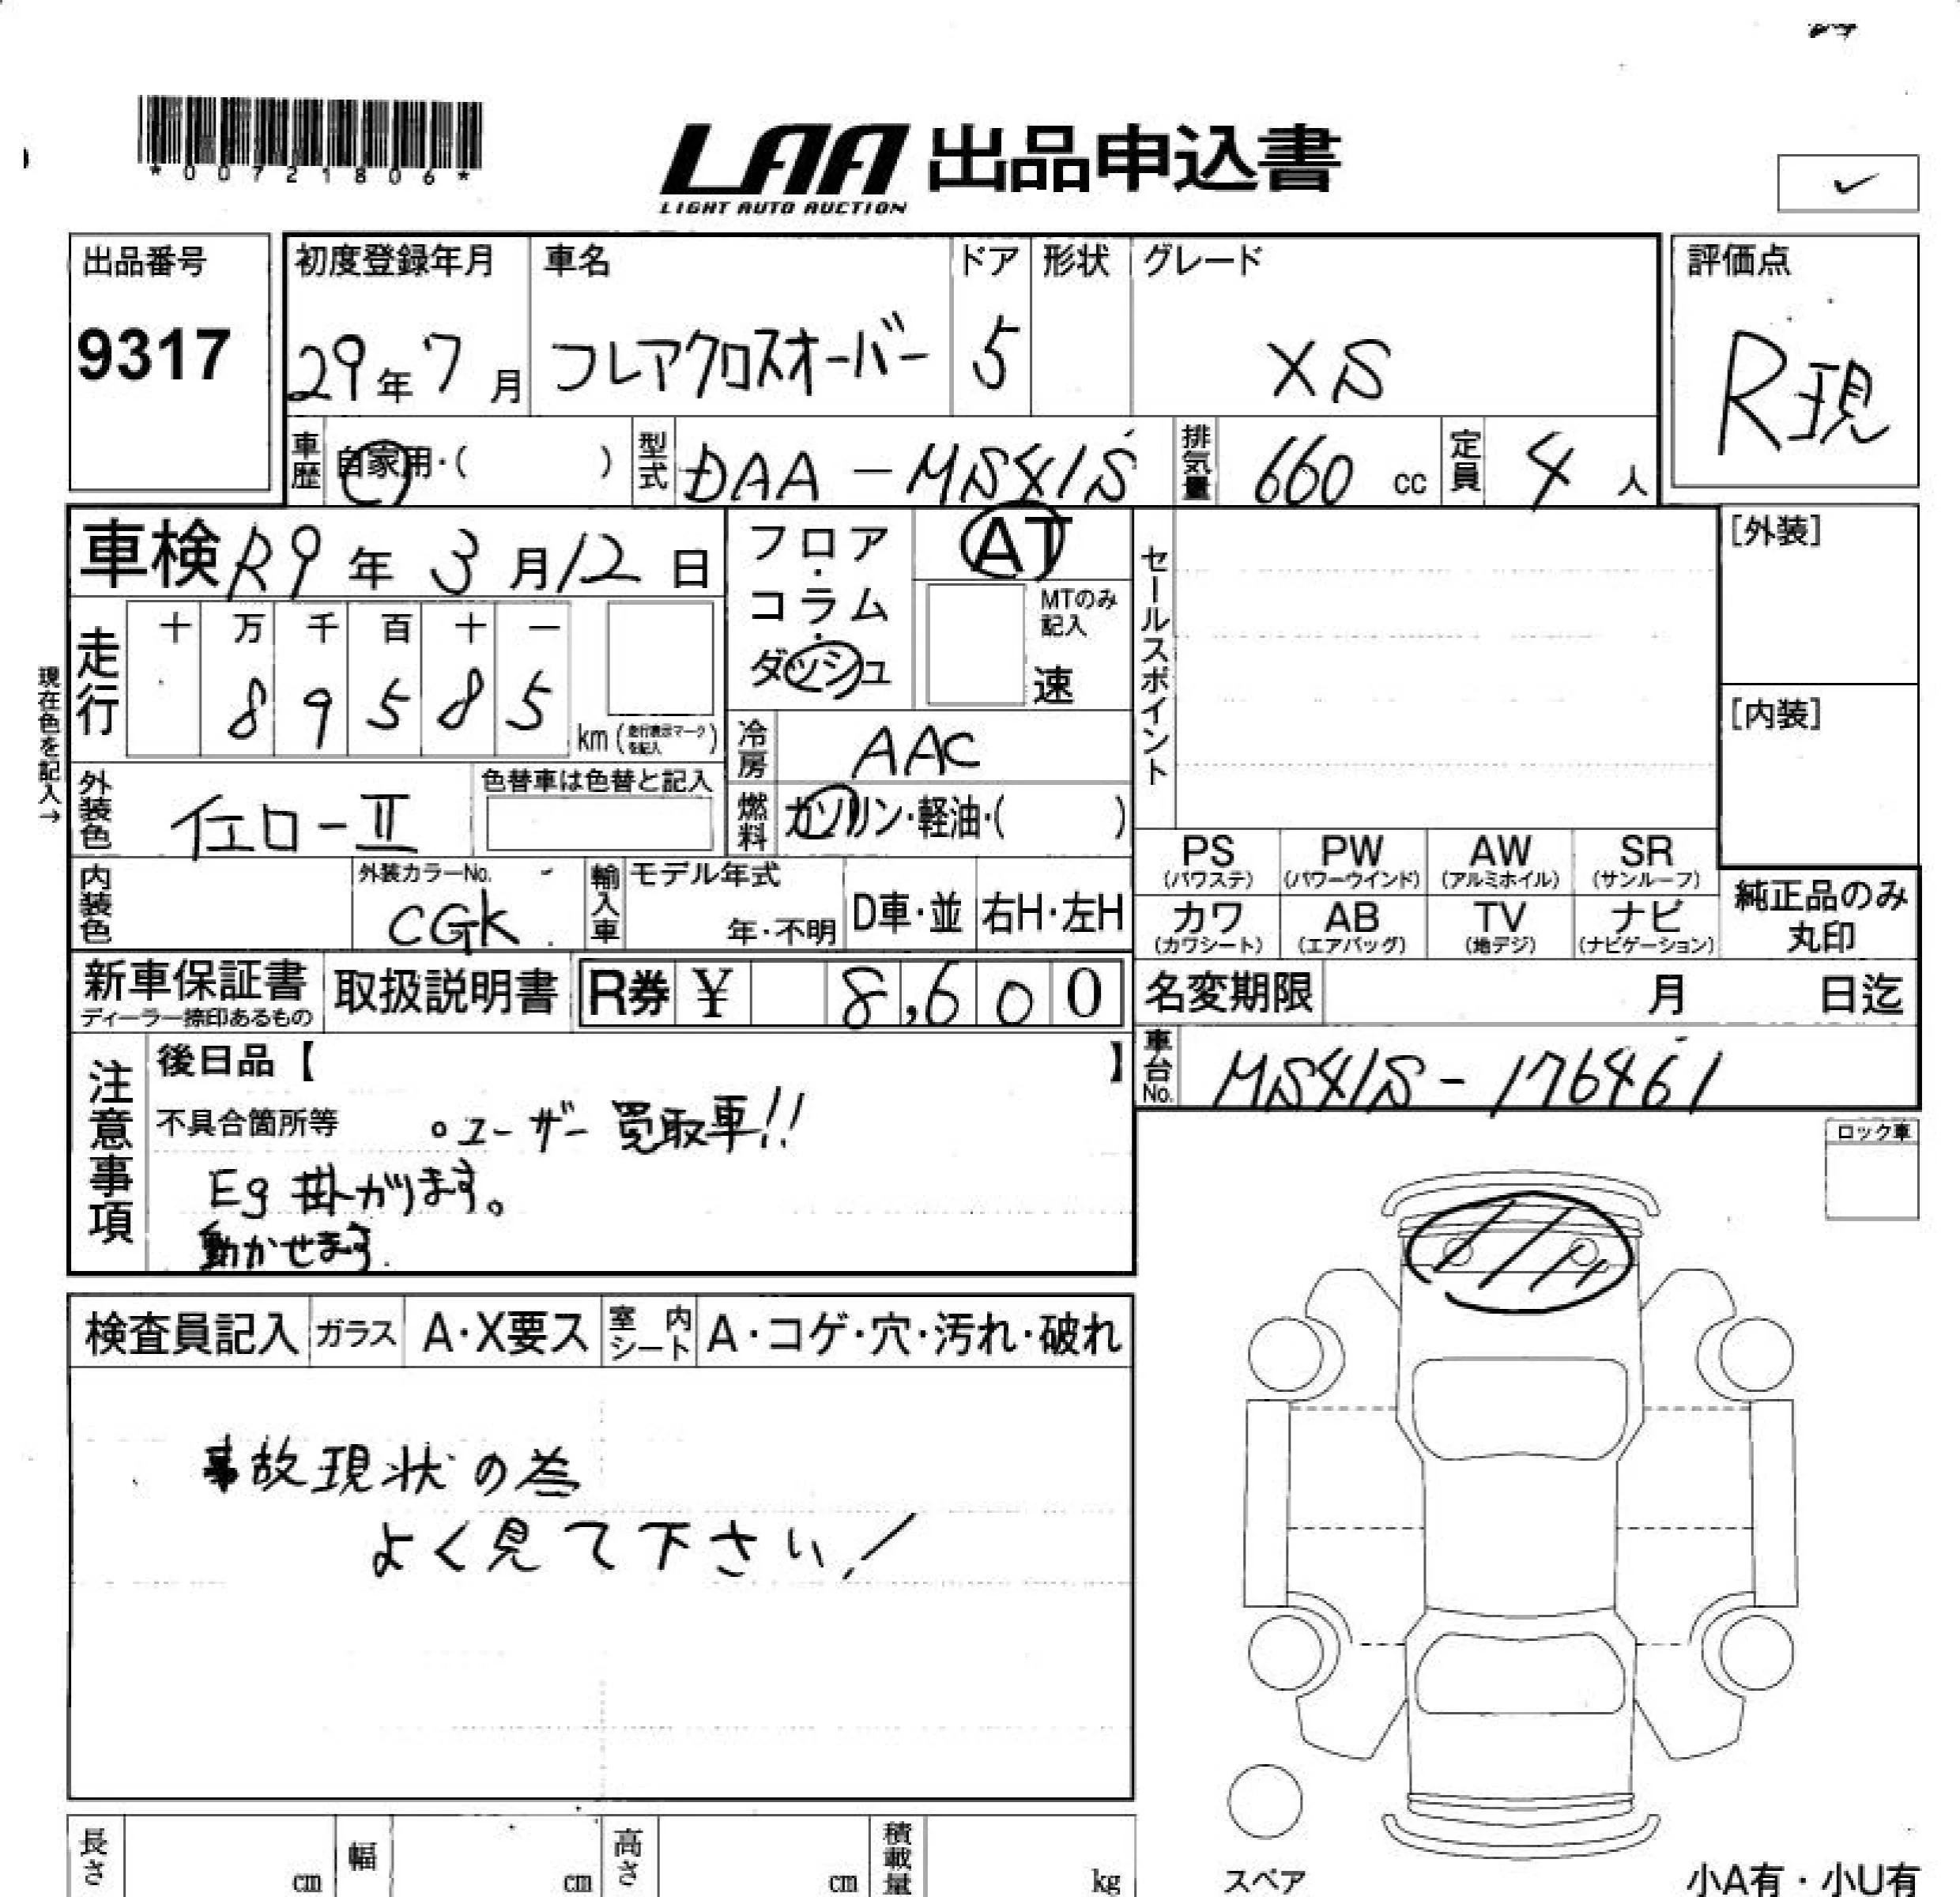 *00721806*
LAA 出品申込書
LIGHT AUTO AUCTION
出品番号
9317
初度登録年月
29年7月
車名
フレアクロスオーバー
ドア
5
形状
グレード
XS
評価点
R現
車歴 自家用・( )
型式 DAA-MS41S
排気量 660 cc
定員 4 人
車検 R9年 3月12日
走行 十 万 千 百 十 一
8 9 5 8 5
km (走行表示マークを記入)
現在色を記入→
外装色 イエローⅡ
色替車は色替と記入
内装色
外装カラーNo.
CGK
フロア・コラム・ダッシュ
AT
MTのみ記入
速
冷房 AAC
燃料 ガソリン・軽油・( )
輸入車 モデル年式
年・不明
D車・並
右H・左H
セールスポイント
[外装]
[内装]
PS (パワステ)
PW (パワーウインド)
AW (アルミホイル)
SR (サンルーフ)
カワ (カワシート)
AB (エアバッグ)
TV (地デジ)
ナビ (ナビゲーション)
純正品のみ丸印
新車保証書
ディーラー捺印あるもの
取扱説明書
R券 ¥ 8,600
名変期限 月 日迄
車台No. MS41S-176461
注意事項
後日品【 】
不具合箇所等 。ユーザー買取車!!
Eg 掛かります。
動かせます.
ロック車
検査員記入
ガラス A・X要ス
室内シート A・コゲ・穴・汚れ・破れ
事故現状の為
よく見て下さい!
長さ cm
幅 cm
高さ cm
積載量 kg
スペア
小A有・小U有